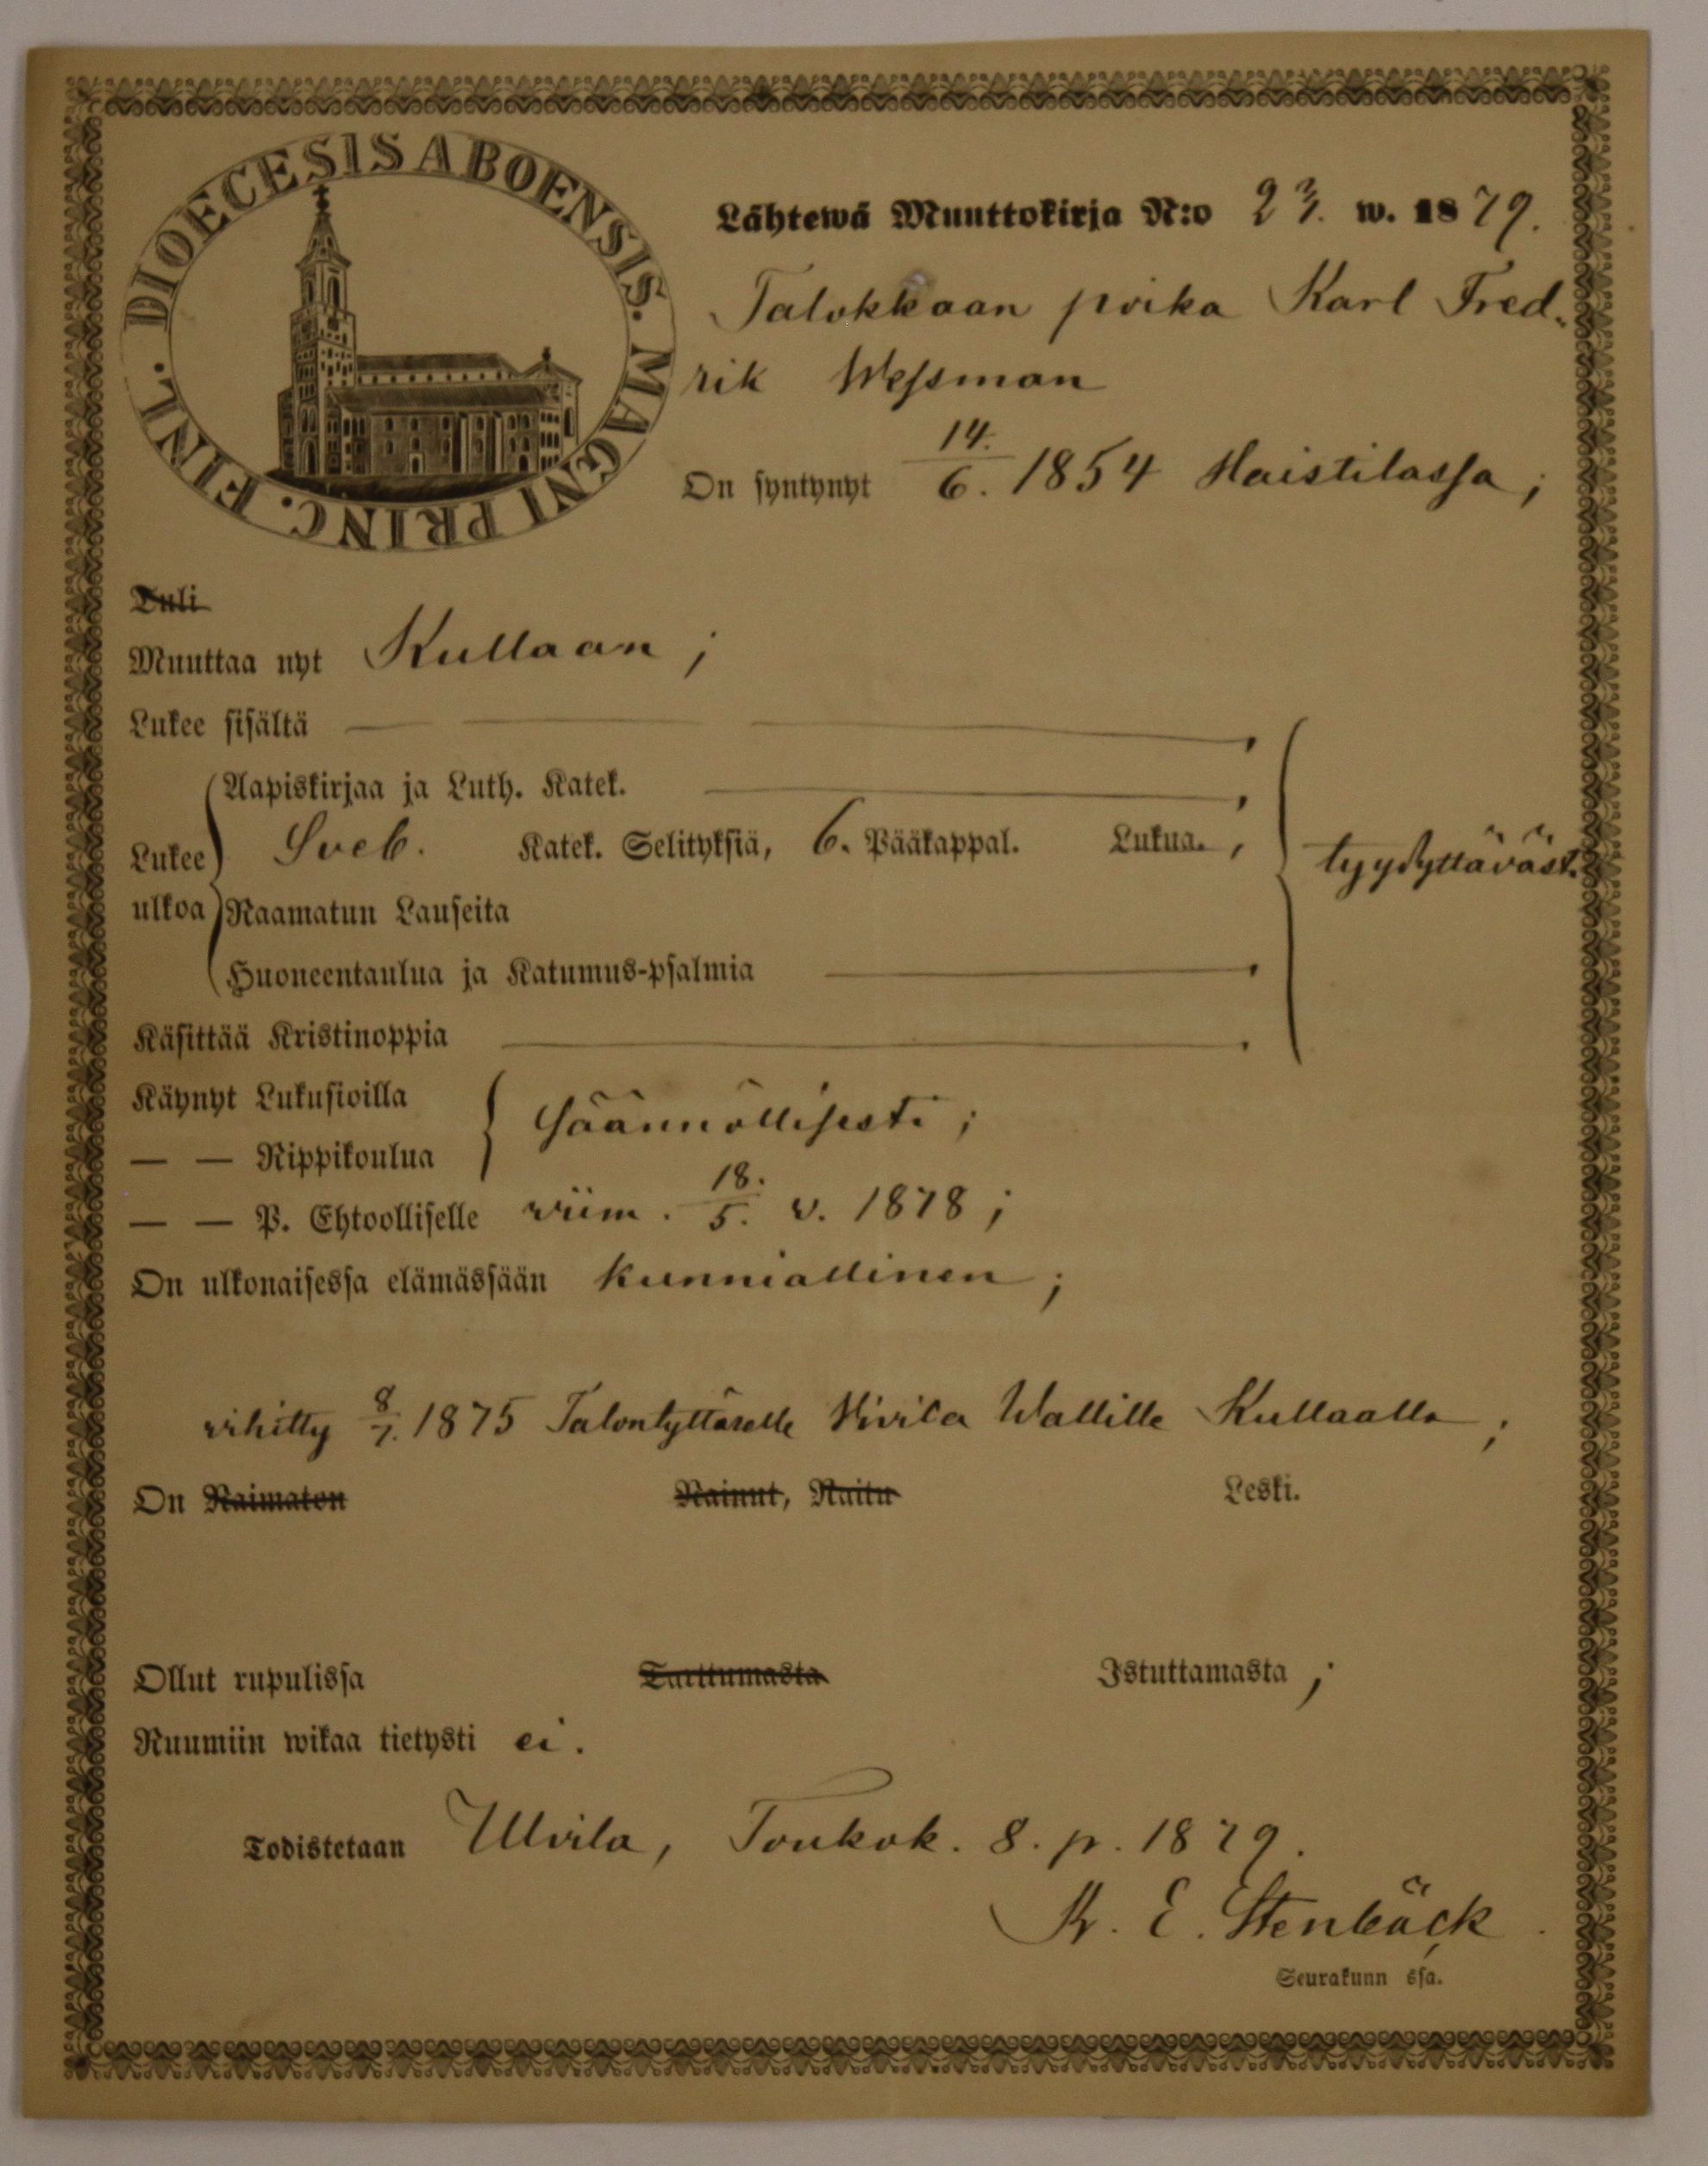 DIOECESIS ABOENSIS. MAGNI PRINC. FINL.
Lähtewä Muuttokirja N:o 27. w. 1879.
Talokkaan poika Karl Fred-
rik Wessman
On syntynyt 14./6. 1854 Haistilassa;
Tuli
Muuttaa nyt Kullaan;
Lukee sisältä
Lukee ulkoa
Aapiskirjaa ja Luth. Katek.
Sveb. Katek. Selityksiä, 6. Pääkappal. Lukua.,
tyydyttäväst.
Raamatun Lauseita
Huoneentaulua ja Katumus-psalmia
Käsittää Kristinoppia
Käynyt Lukusioilla
säännöllisesti;
— — Rippikoulua
— — P. Ehtoolliselle viim. 18./5. v. 1878;
On ulkonaisessa elämässään kunniallinen;
vihitty 8/7. 1875 Talontyttärelle Wallille Kullaalla;
On Naimaton Nainut, Naitu Leski.
Ollut rupulissa Tarttumasta Istuttamasta;
Ruumiin wikaa tietysti ei.
Todistetaan Ulvila, Toukok. 8. p. 1879.
K. E. Stenbäck.
Seurakunn ssa.